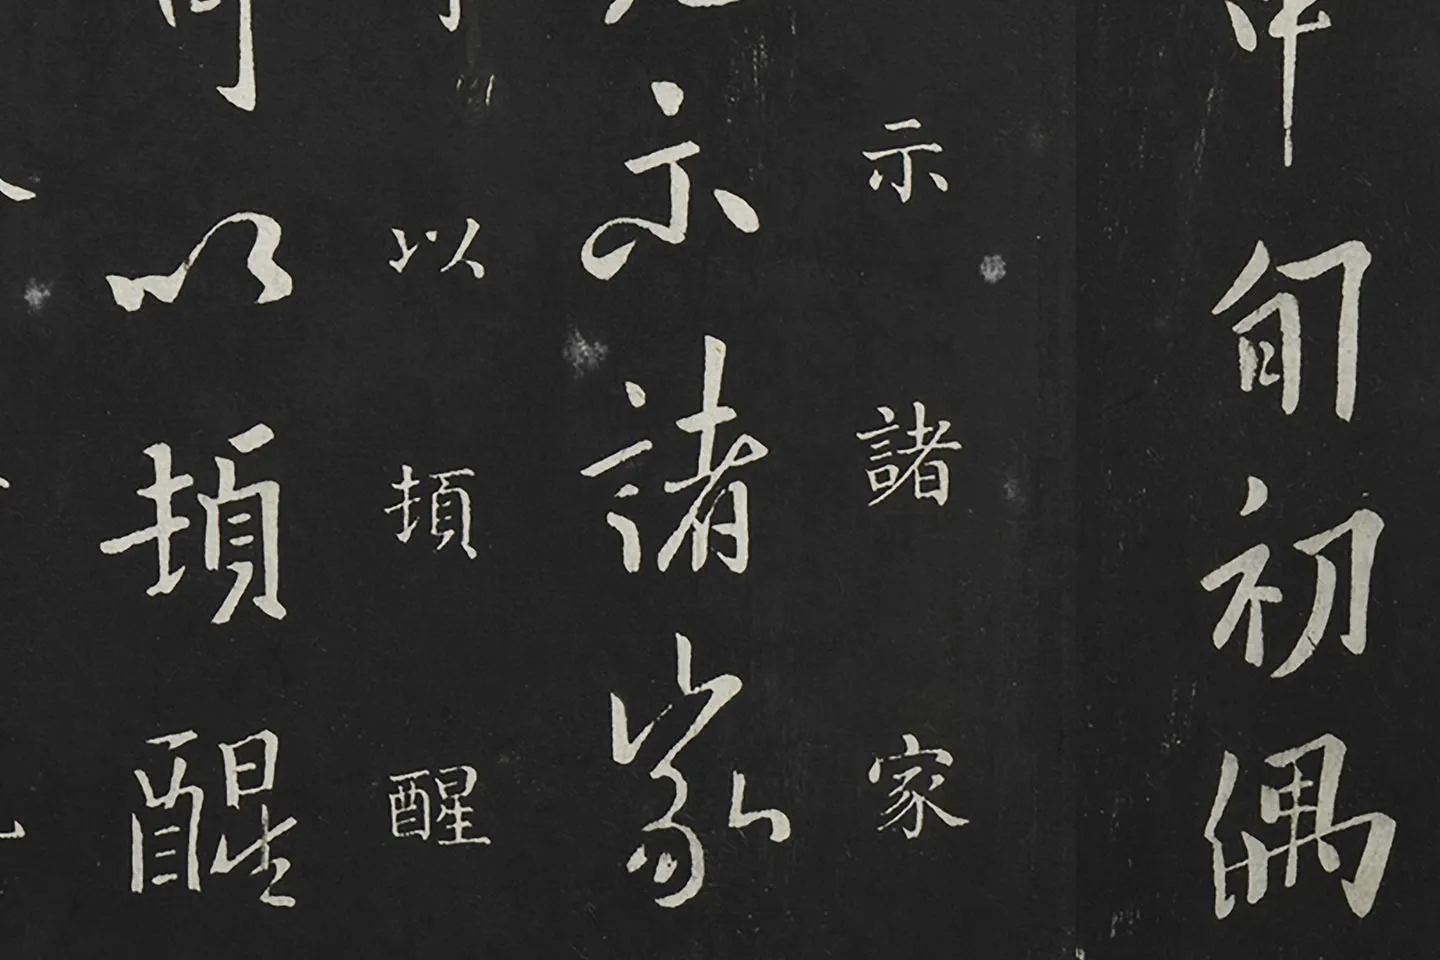 旬初偶
示諸家
示諸家
以頓醒
以頓醒